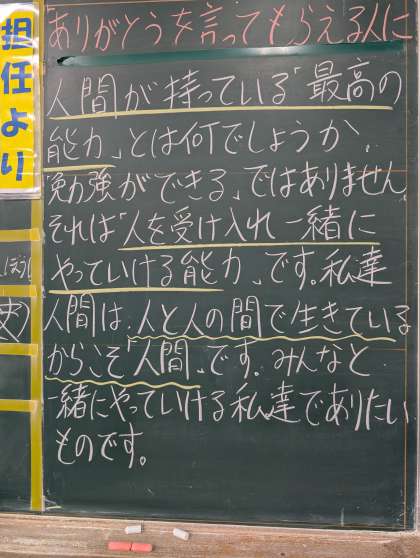 担任より
ありがとうを言ってもらえる人に
人間が持っている「最高の
能力」とは何でしょうか。
「勉強ができる」ではありません
それは「人を受け入れ一緒に
やっていける能力」です。私達
人間は、人と人の間で生きている
からこそ「人間」です。みんなと
一緒にやっていける私達でありたい
ものです。